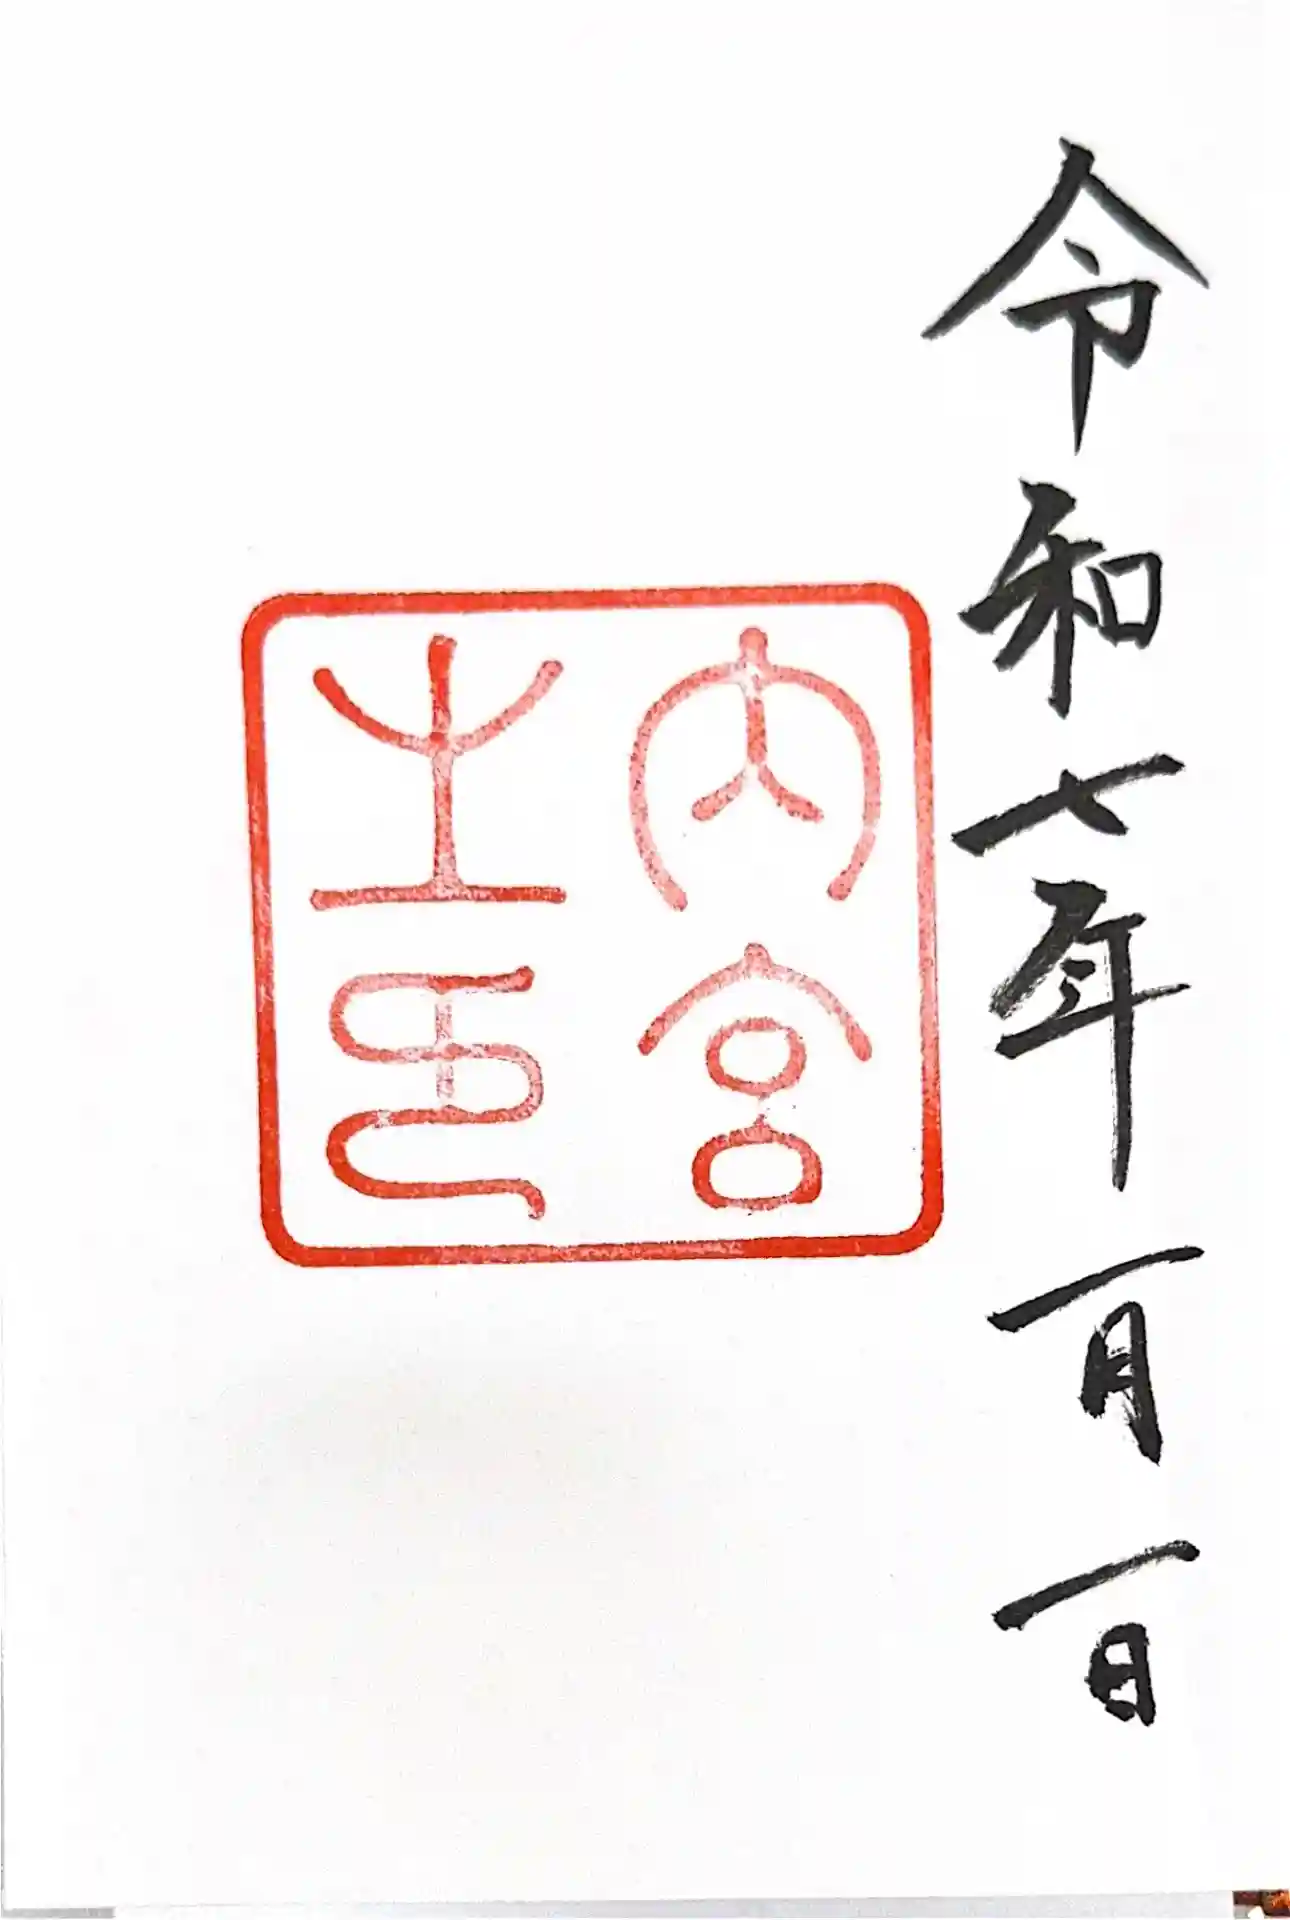 令和七年一月一日
内宮
之印